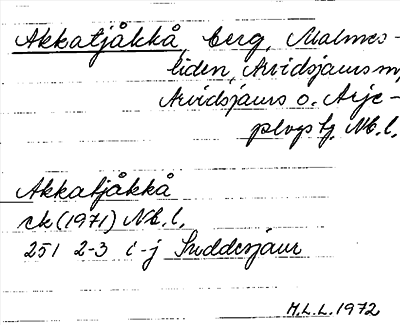 Akkatjåkkå, berg, Malmes-
liden, Arvidsjaurs m,
Arvidsjaurs o. Arje-
plogs tg. Nb. l.
Akkatjåkkå
ek (1971) Nb. l.
251 2-3 i-j Suddesjaur
H.L.L. 1972